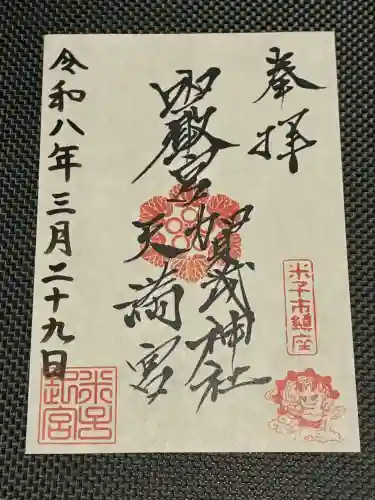 奉拝
賀茂神社
天満宮
令和八年三月二十九日
米子市鎮座